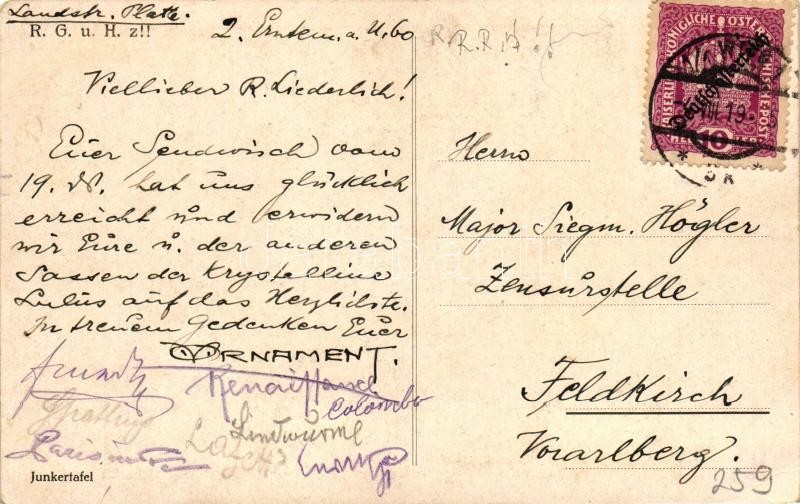 Landstr. Platte.
R. G. u. H. z!!
2. Erntem. a. U. 60
Viellieber R. Liederlich!
Euer Sendwisch vom
19. hat uns glücklich
erreicht und erwidern
wir Eure u. der anderen
Sassen der Krystelline
Lulus auf das Herzlichste.
In treuem Gedenken Euer
ORNAMENT.
Renaissance
Colombo
Lindwurm
Junkertafel
KAISERLICH KÖNIGLICHE ÖSTERREICHISCHE POST
Deutschösterreich
10
Herrn
Major Siegm. Högler
Zensurstelle
Feldkirch
Vorarlberg.
259